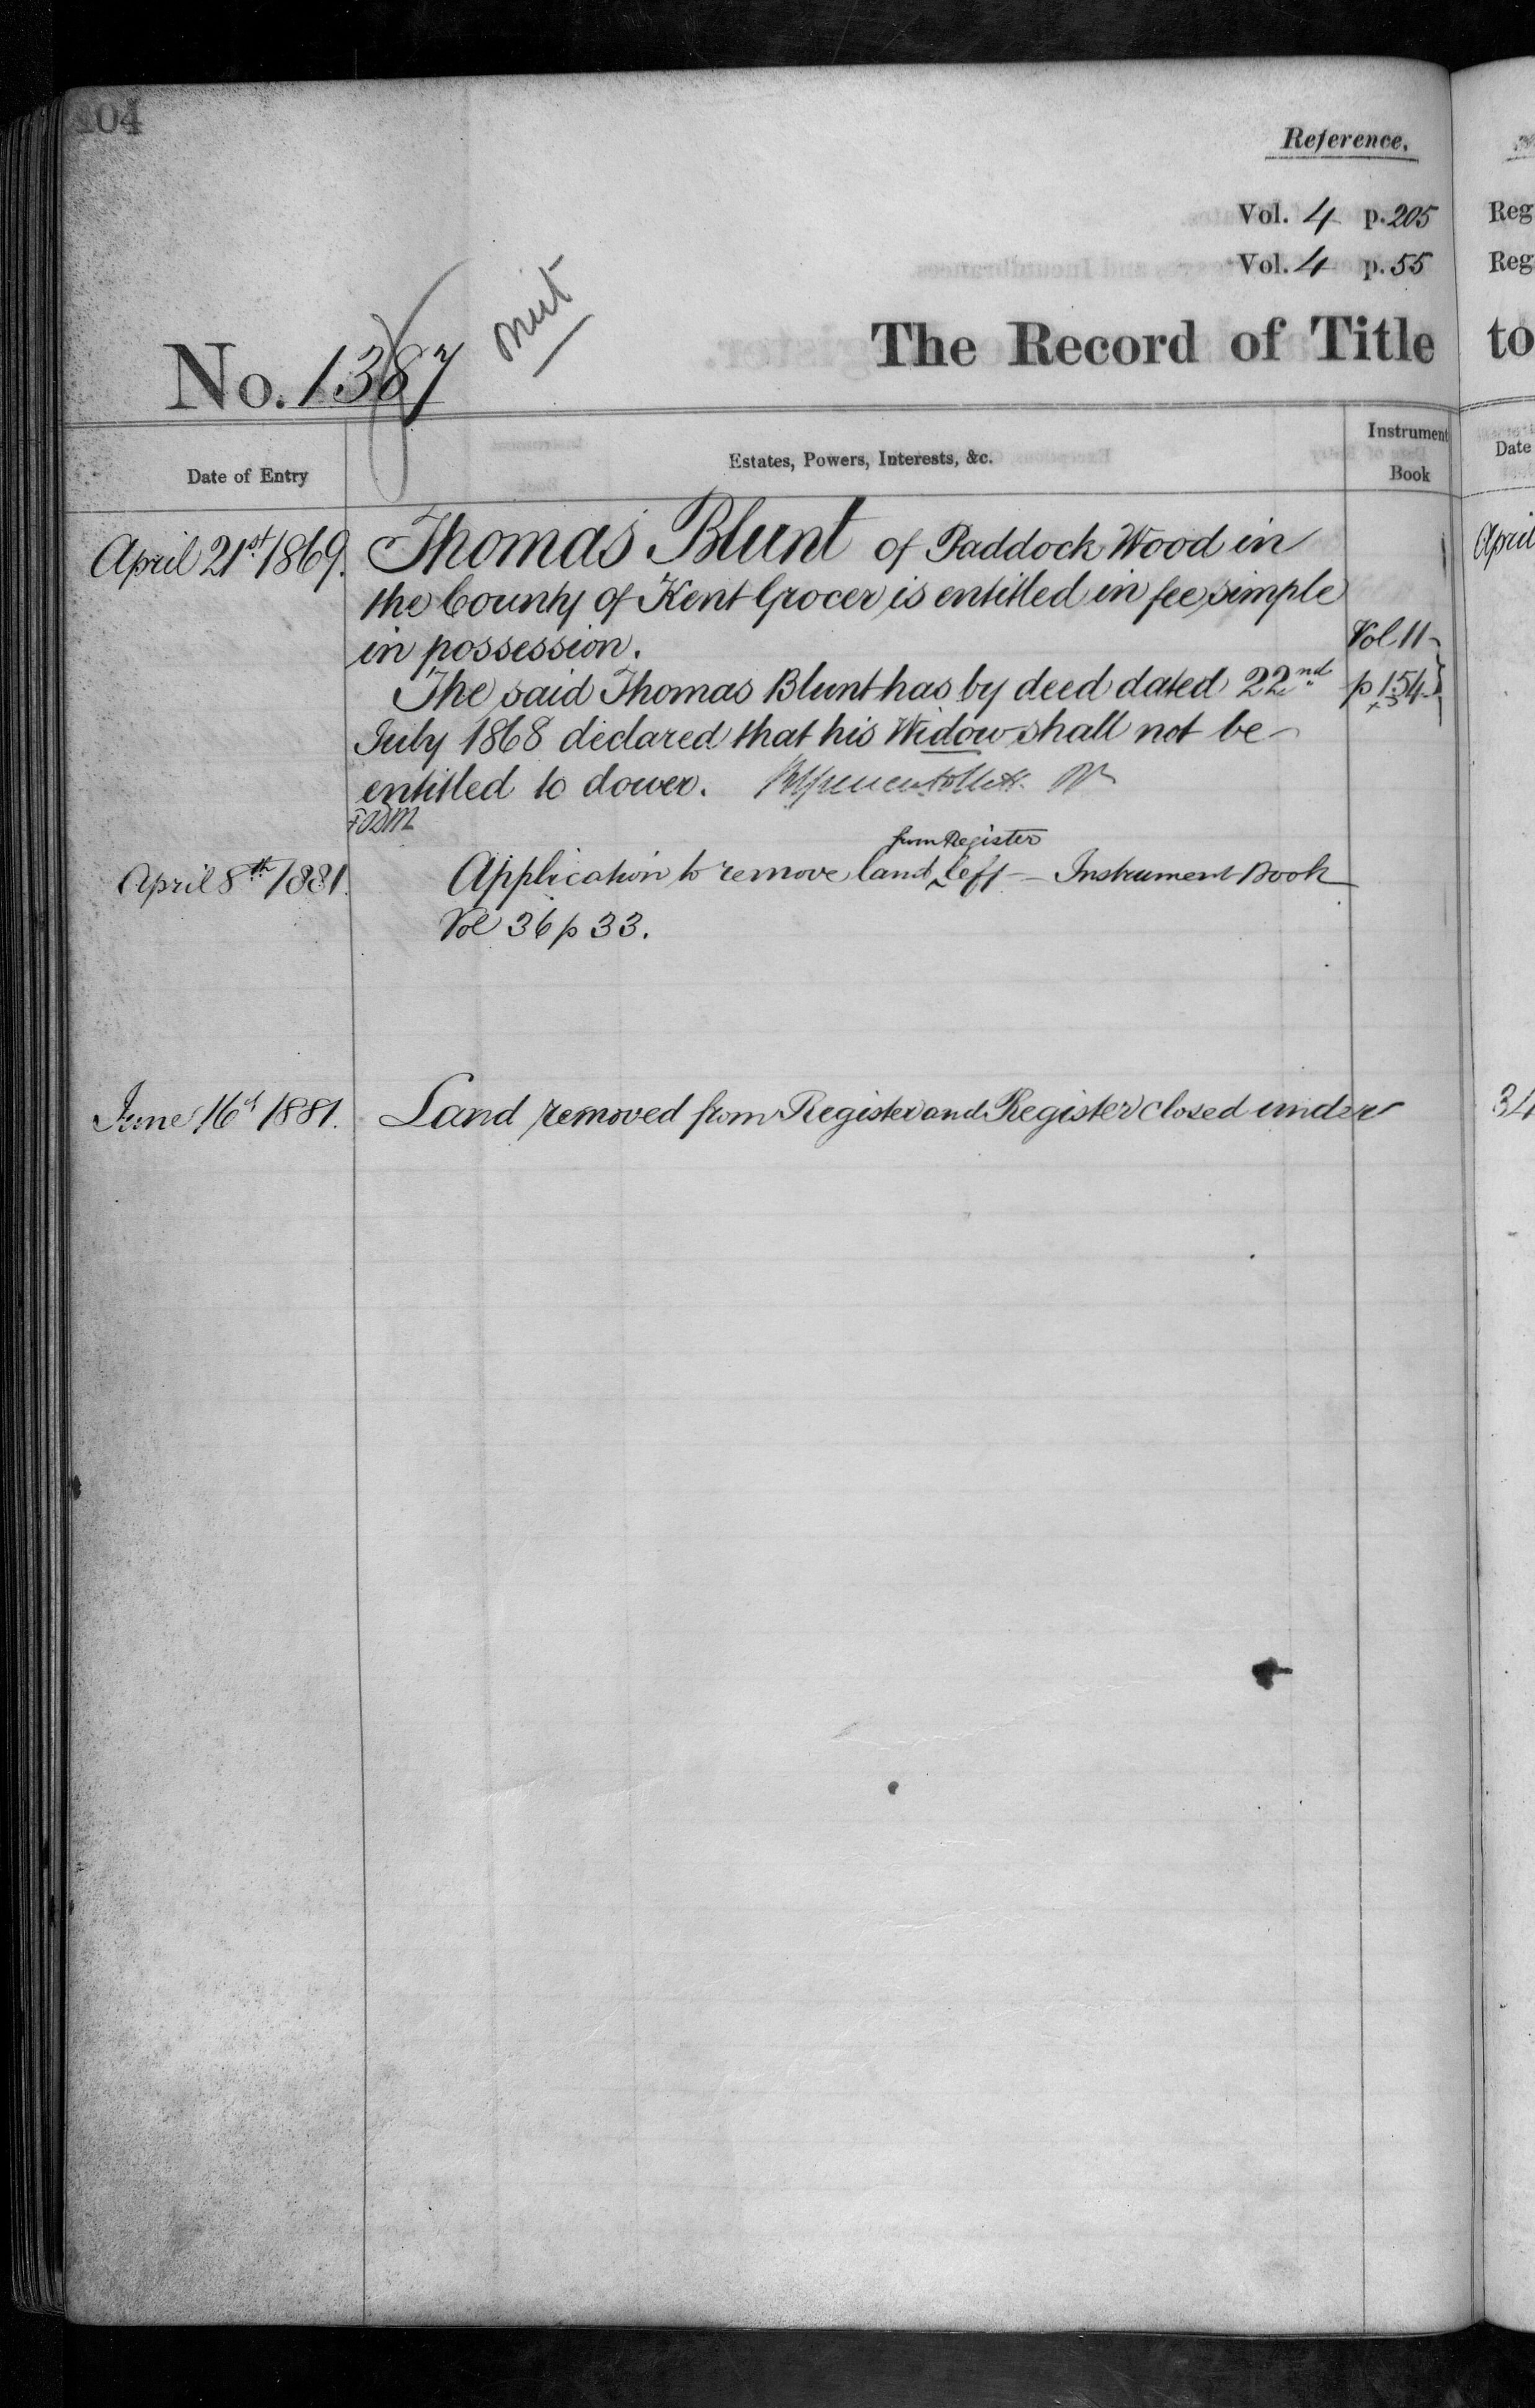 104
Reference.
Vol. 4 p. 205
Vol. 4 p. 55
No. 1387
The Record of Title
Date of Entry
Estates, Powers, Interests, &c.
Instrument
Book
April 21st 1869. Thomas Blunt of Paddock Wood in
the County of Kent Grocer is entitled in fee simple
in possession.
Vol. 11
The said Thomas Blunt has by deed dated 22nd
p 154
July 1868 declared that his Widow shall not be
entitled to dower.
from Register
April 8th 1881. Application to remove land left – Instrument Book
Vol 36 p 33.
June 16th 1881. Land removed from Register and Register closed under
Reg
Reg
to
Date
April
34